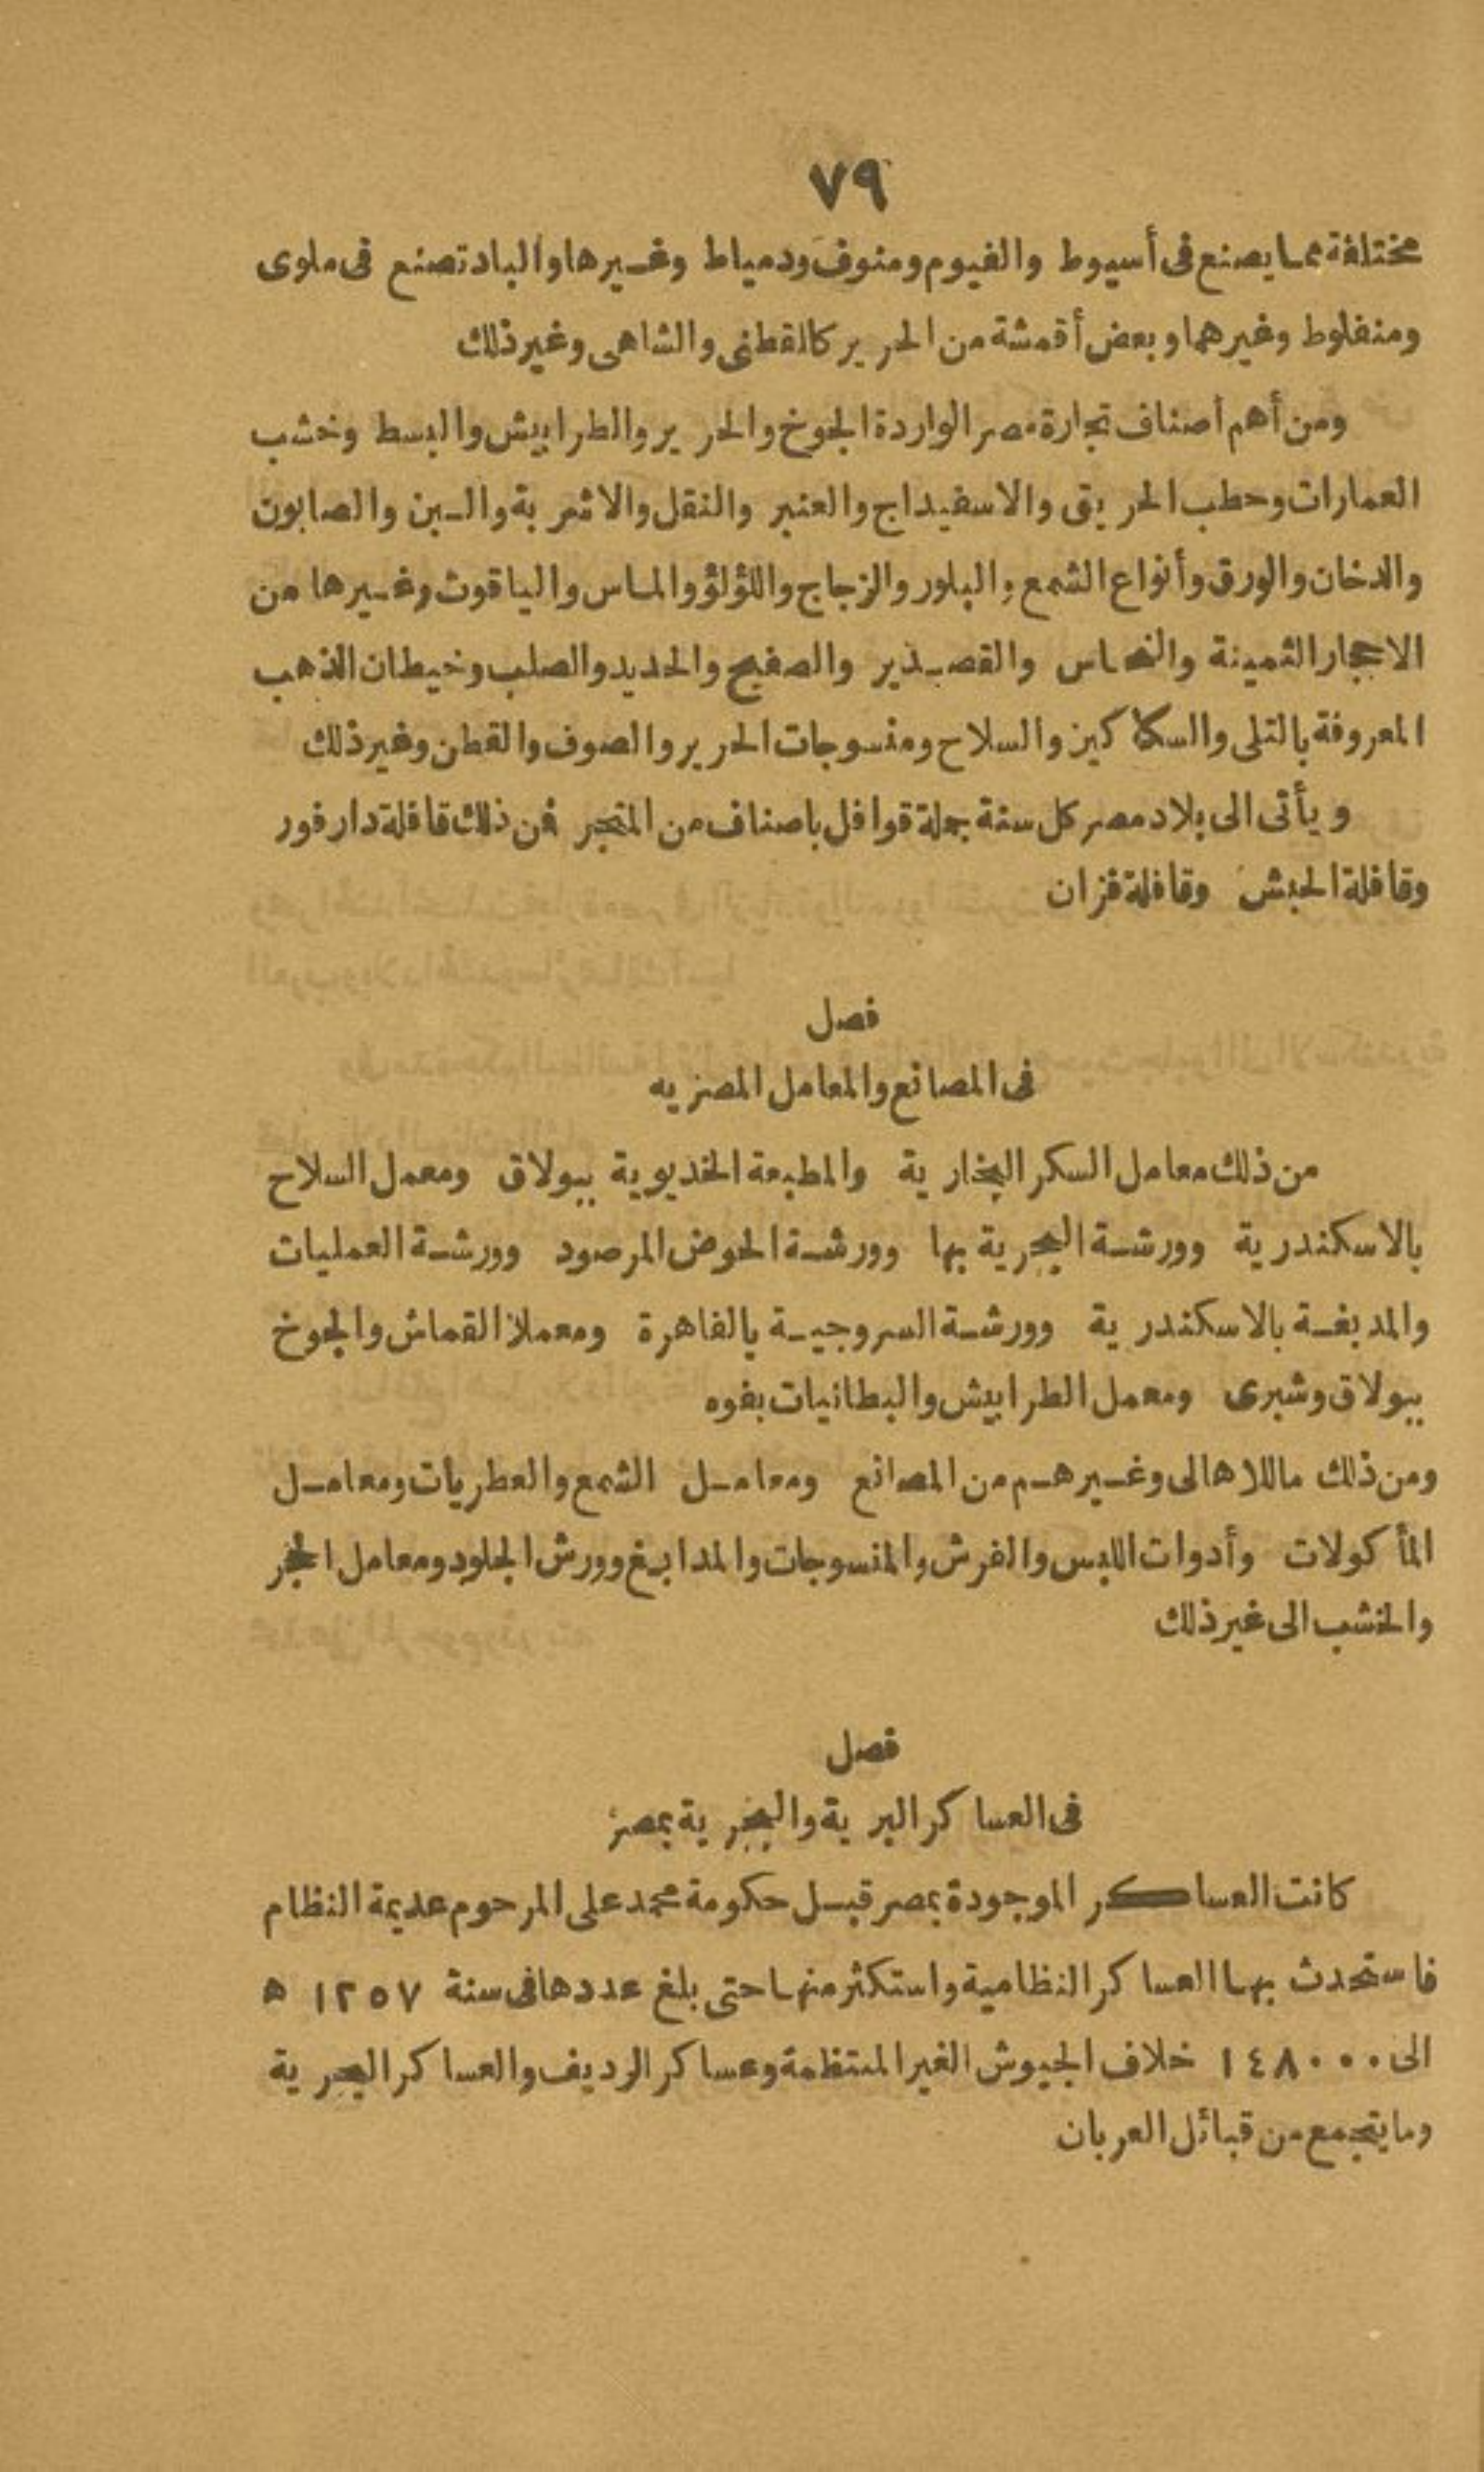 ٧٩
مختلفة مما يصنع فى أسيوط والفيوم ومنوف ودمياط وغيرها والباد تصنع فى ملوى
ومنفلوط وغيرهما وبعض أقمشة من الحرير كالقطنى والشاهى وغير ذلك
ومن أهم أصناف تجارة مصر الواردة الجوخ والحرير والطرابيش والبسط وخشب
العمارات وحطب الحريق والاسفيداج والعنبر والنقل والاشربة والبن والصابون
والدخان والورق وأنواع الشمع والبلور والزجاج واللؤلؤ والماس والياقوت وغيرها من
الاحجار الثمينة والنحاس والقصدير والصفيح والحديد والصلب وخيطان الذهب
المعروفة بالتلى والسكاكين والسلاح ومنسوجات الحرير والصوف والقطن وغير ذلك
ويأتى الى بلاد مصر كل سنة جملة قوافل باصناف من المتجر فمن ذلك قافلة دارفور
وقافلة الحبش وقافلة فزان
فصل
فى المصانع والمعامل المصريه
من ذلك معامل السكر البخارية والمطبعة الخديوية ببولاق ومعمل السلاح
بالاسكندرية وورشة البحرية بها وورشة الحوض المرصود وورشة العمليات
والمدبغة بالاسكندرية وورشة السروجية بالقاهرة ومعملا القماش والجوخ
ببولاق وشبرى ومعمل الطرابيش والبطانيات بفوه
ومن ذلك ماللاهالى وغيرهم من المصانع ومعامل الشمع والعطريات ومعامل
المأكولات وأدوات اللبس والفرش والمنسوجات والمدابغ وورش الجلود ومعامل الحجر
والخشب الى غير ذلك
فصل
فى العساكر البرية والبحرية بمصر
كانت العساكر الموجودة بمصر قبل حكومة محمد على المرحوم عديمة النظام
فاستحدث بها العساكر النظامية واستكثر منها حتى بلغ عددها فى سنة ١٢٥٧ ه
الى ١٤٨٠٠٠ خلاف الجيوش الغير المنتظمة وعساكر الرديف والعساكر البحرية
وما يتجمع من قبائل العربان